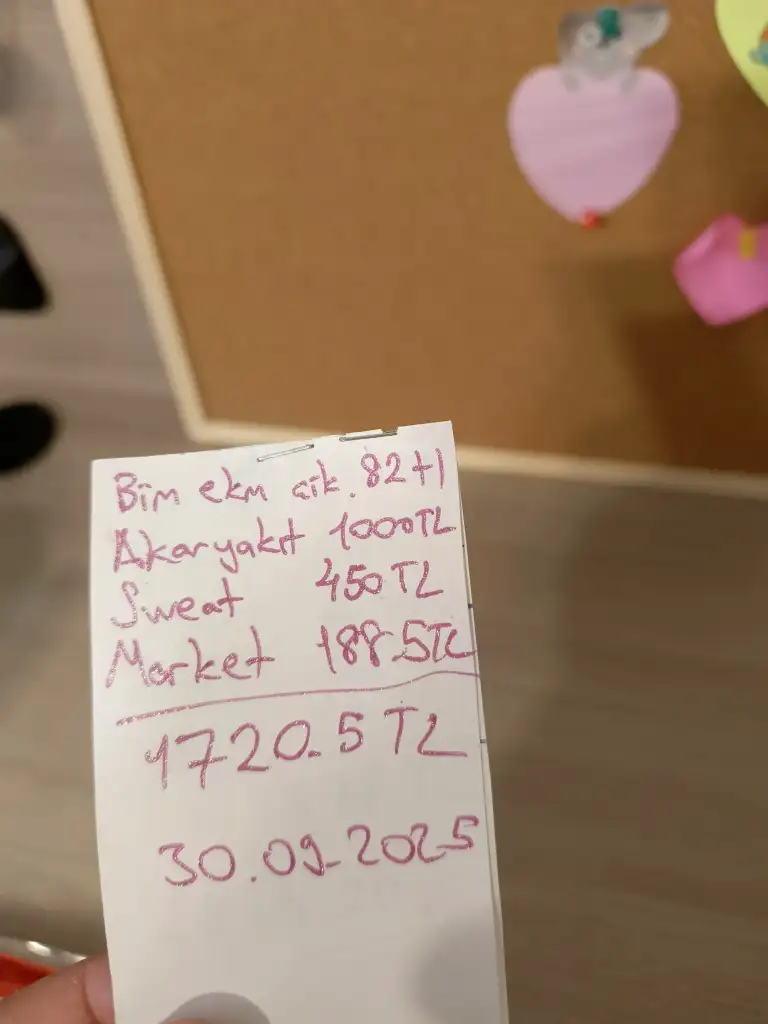 Bim ekm çik. 82tl
Akaryakıt 1000TL
Sweat 450TL
Market 188.5TL
1720.5 TL
30.09.2025